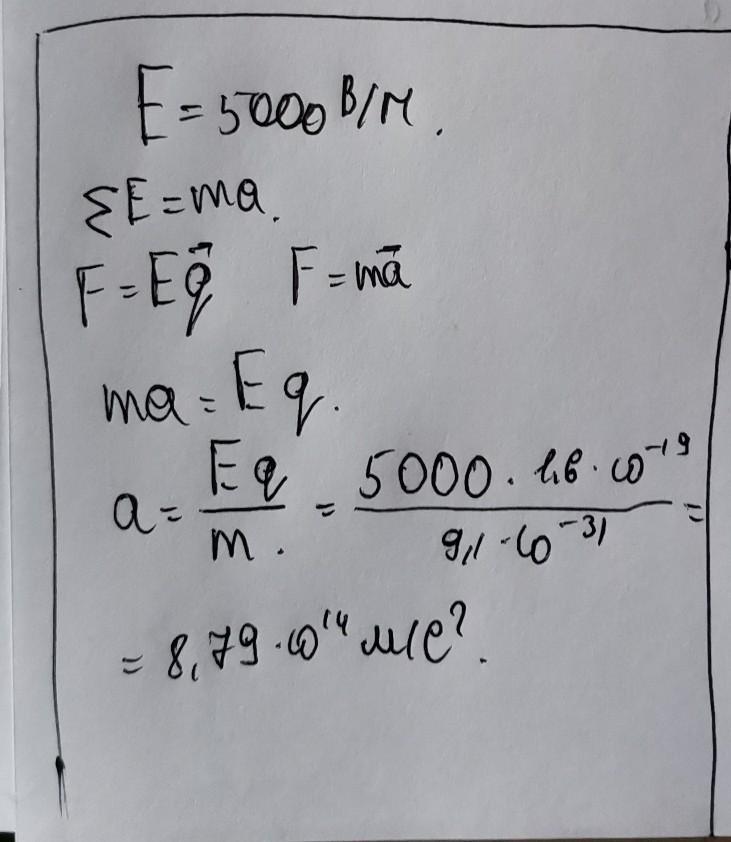 E = 5000 В/м.
ΣE = ma.
F = Eq⃗ F = ma⃗
ma = Eq.
a = Eq/m. = 5000 · 1,6 · 10⁻¹⁹ / 9,1 · 10⁻³¹ =
= 8,79 · 10¹⁴ м/с².